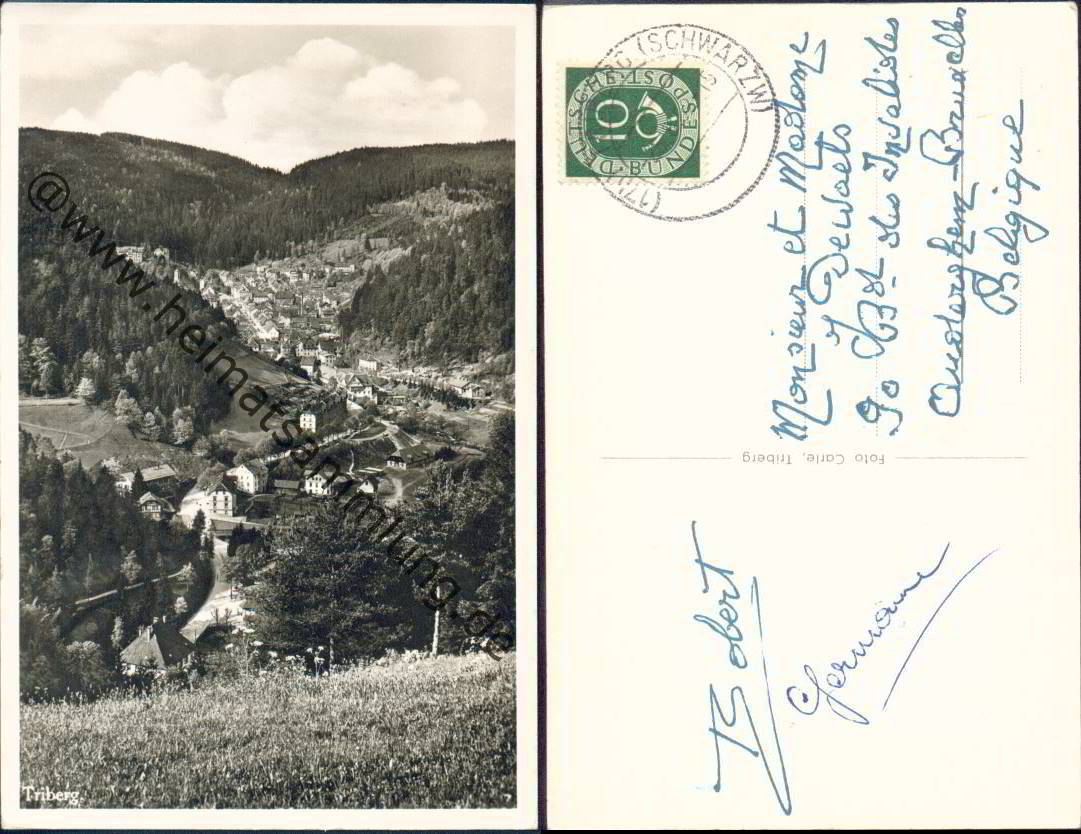 Triberg.
@www.heimatsammlung.de
(SCHWARZW)
(17
DEUTSCHE·POST·
10
BUNDESPOST
Monsieur et Madame
Dewaels
90 Bd des Invalides
Auderghem-Bruxelles
Belgique
Foto Carle, Triberg
Robert
Germaine